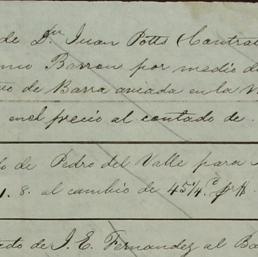 de Dn Juan Potts (Contrat
Barron por medio d
de Barra aviada en la
en el precio al contado de
de Pedro del Valle para
1. 8. al cambio de 45¼
de J. E. Fernandez al Ba